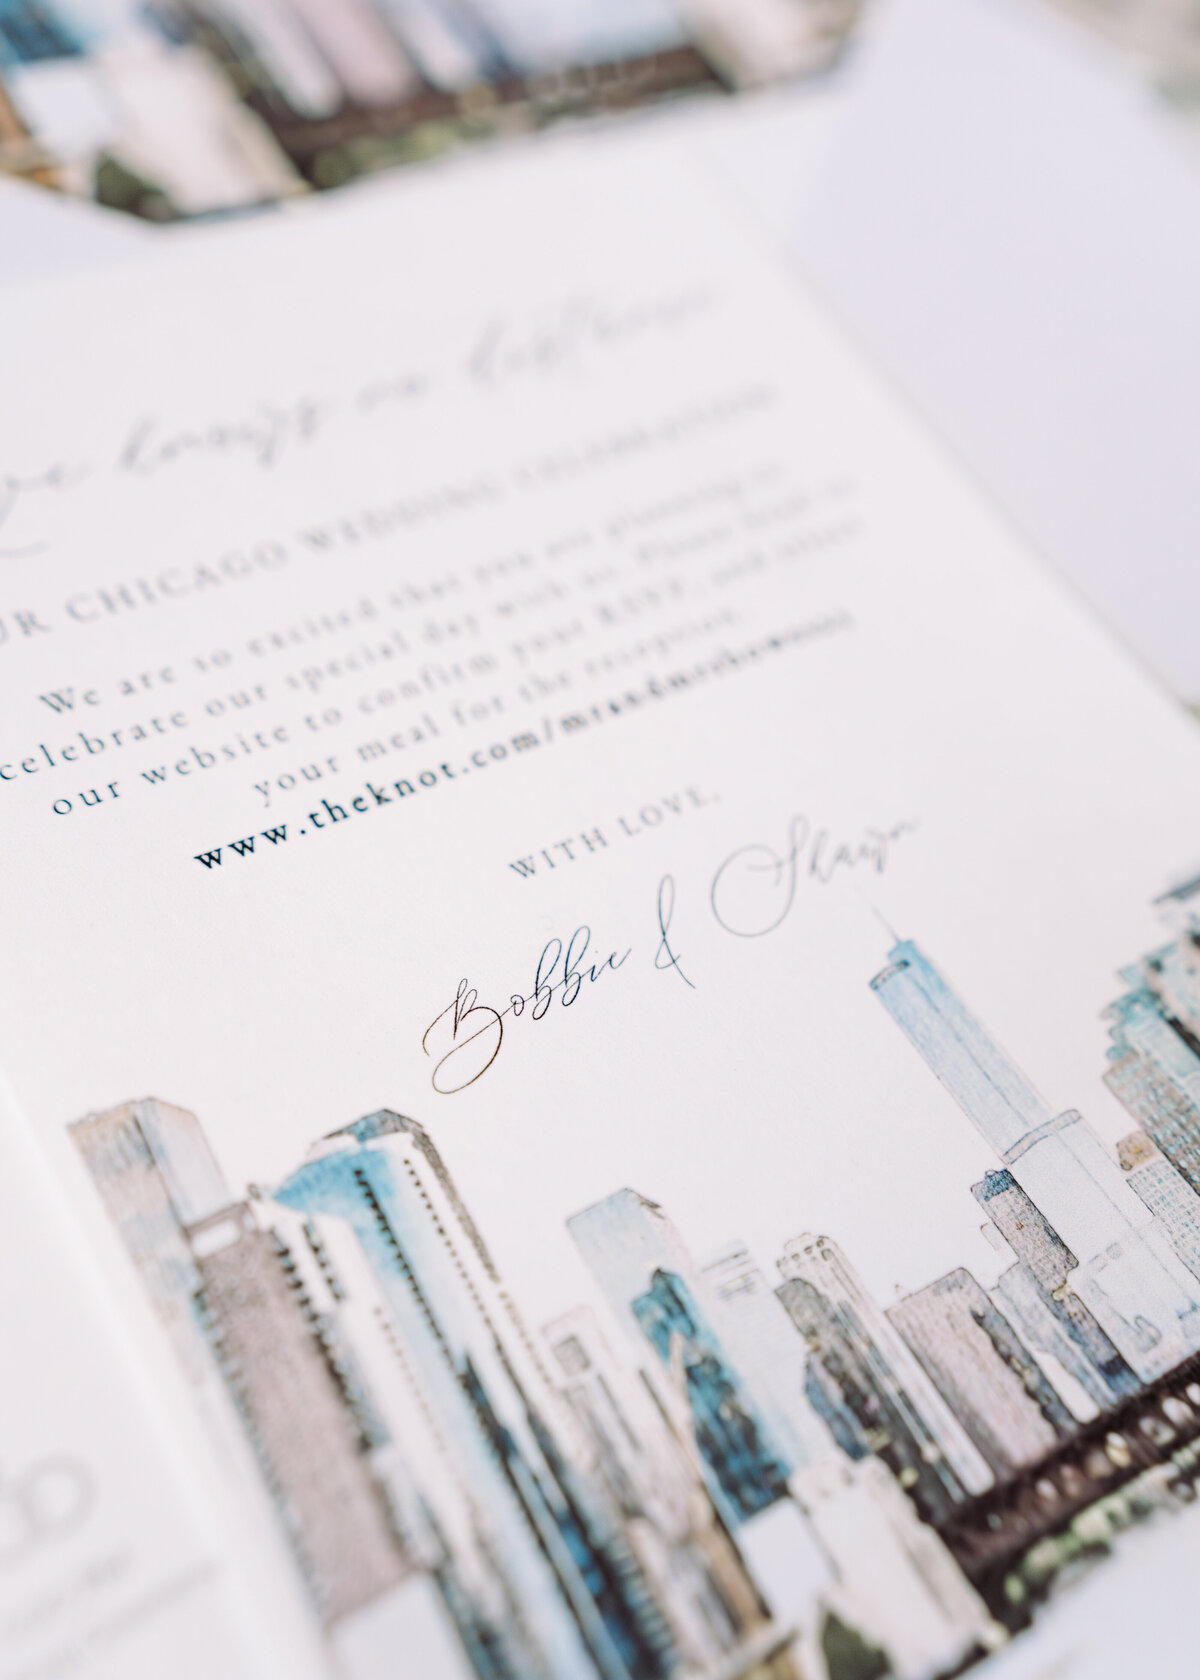 CHICAGO WEDDING CELEBRATION
We are so excited that you are planning to
celebrate our special day with us. Please head to
our website to confirm your RSVP, and select
your meal for the reception.
www.theknot.com/mrandmrs
WITH LOVE,
Bobbie & Shawn